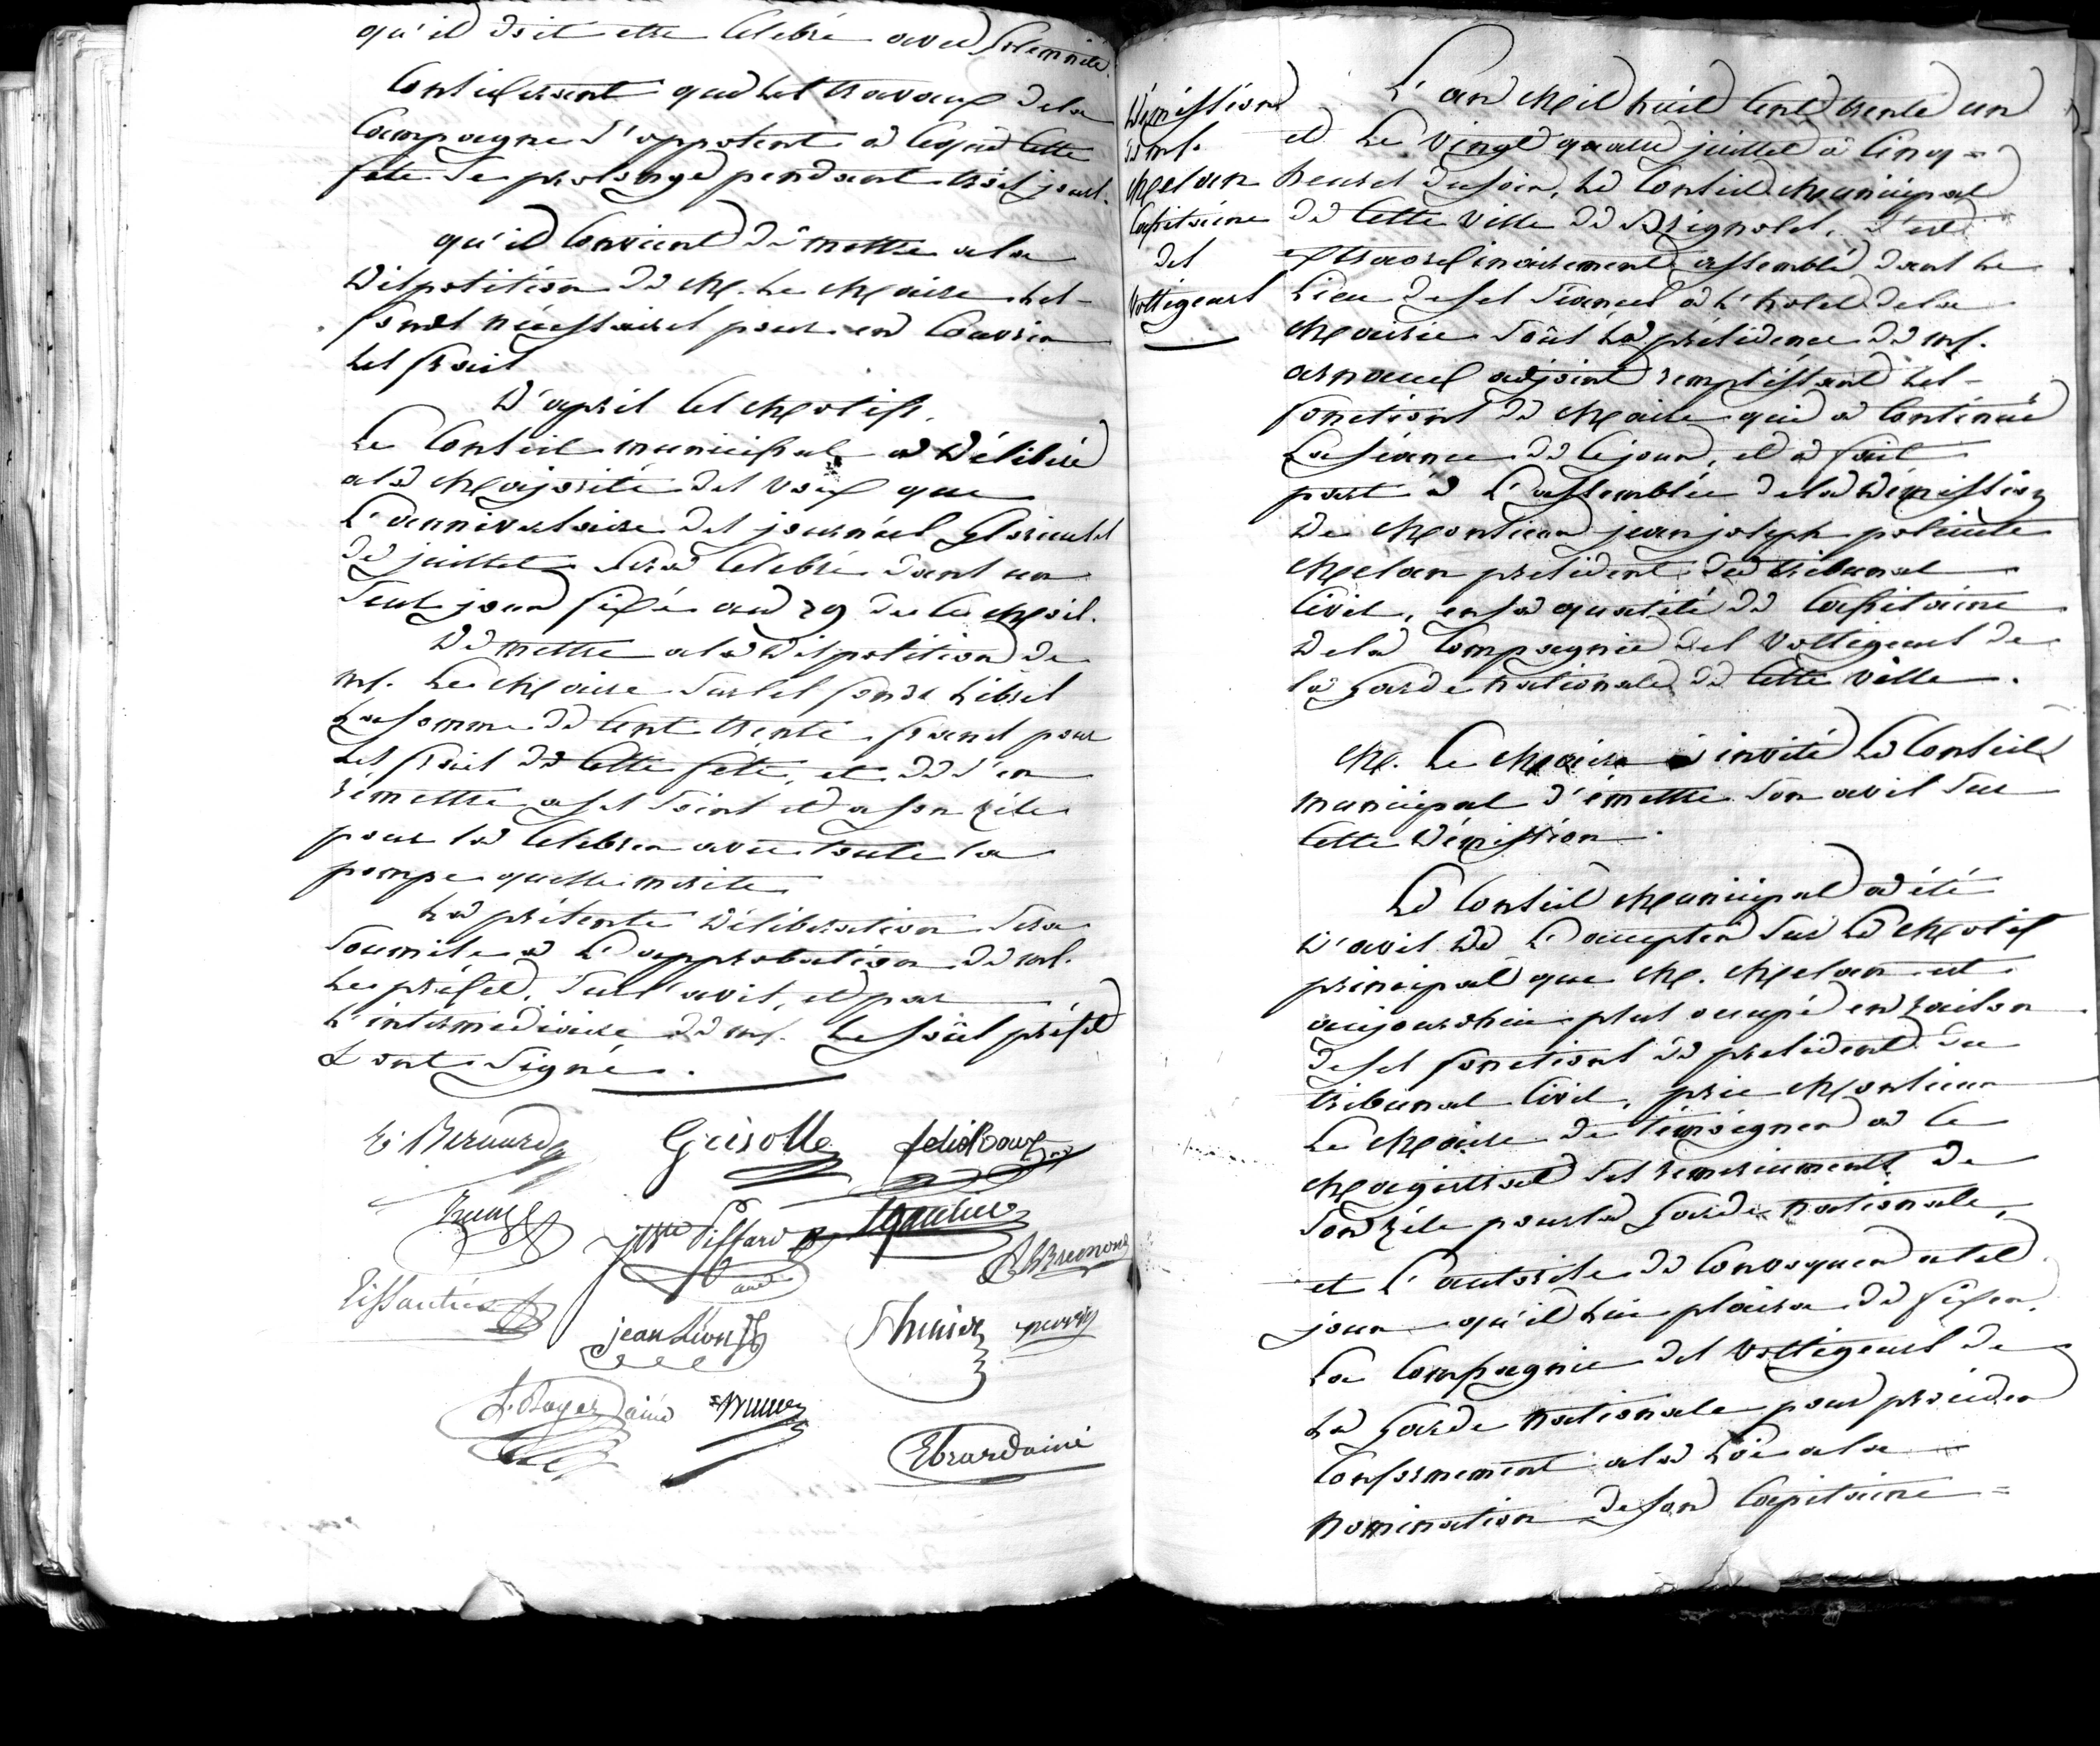 qu'il doit etre Celebré avec Solemnité.
Considerant que les travaux dela
Campagne s'opposent à ceque Cette
fete se prolonge pendant trois jours.
qu'il Convient de mettre ala
Disposition de M. Le Maire les
fonds nécessaires pour en Couvrir
les frais
D'après Ces Motifs,
Le Conseil municipal a Déliberé
ala Majorité des voix que
L'anniversaire des journées Glorieuses
de juillet sera Celebré dans un
seul jour fixé au 29 de Ce Mois.
De mettre ala Disposition de
Mr. Le Maire sur les fonds libres
La somme de Cent trente francs pour
les frais de Cette fête, et de s'en
remettre a ses soins et a son zèle
pour la Celebrer avec toute la
pompe quelle merite
La présente Délibération sera
soumise a L'approbation de Mr.
Le préfet, sur l'avis, et par
L'intermediaire de Mr. Le sous préfet
& ont signé.
Bernard Guisolle felix Roux
jste Piffard Gautier
Bremond
jean Lion
aîné
Ebrard ainé
Démission
de Mr.
Melan
Capitaine
des
Voltigeurs
L'an Mil huit Cent trente un
et Le Vingt quatre juillet à Cinq =
heures du soir, Le Conseil Municipal
de Cette ville de Brignoles, s'est
extraordinairement assemblé dans Le
Lieu de ses séances à L'hotel dela
Mairie sous la présidence de Mr.
arnaud adjoint remplissant les
fonctions de Maire qui a Continué
La séance de Ce jour, et a fait
part à L'assemblée dela Démission
De Monsieur jean joseph
Melan president du tribunal
Civil, en sa qualité de Capitaine
Dela Compagnie des Voltigeurs de
la garde nationale de Cette ville.
M. Le Maire a invité Le Conseil
municipal d'émettre son avis sur
Cette Démission.
Le Conseil Municipal a été
D'avis de L'accepter sur Le Motif
principal que M. Melan est
aujourdhui plus occupé en raison
de ses fonctions de president du
tribunal Civil, prie Monsieur
Le Maire de temoigner a Ce
Magistrat ses remerciments de
son zèle pour la garde nationale,
et L'autorise de Convoquer a tel
jour qu'il lui plaira de fixer,
La Compagnie des Voltigeurs de
La garde nationale pour procéder
Conformement ala Loi ala
nomination de son Capitaine =